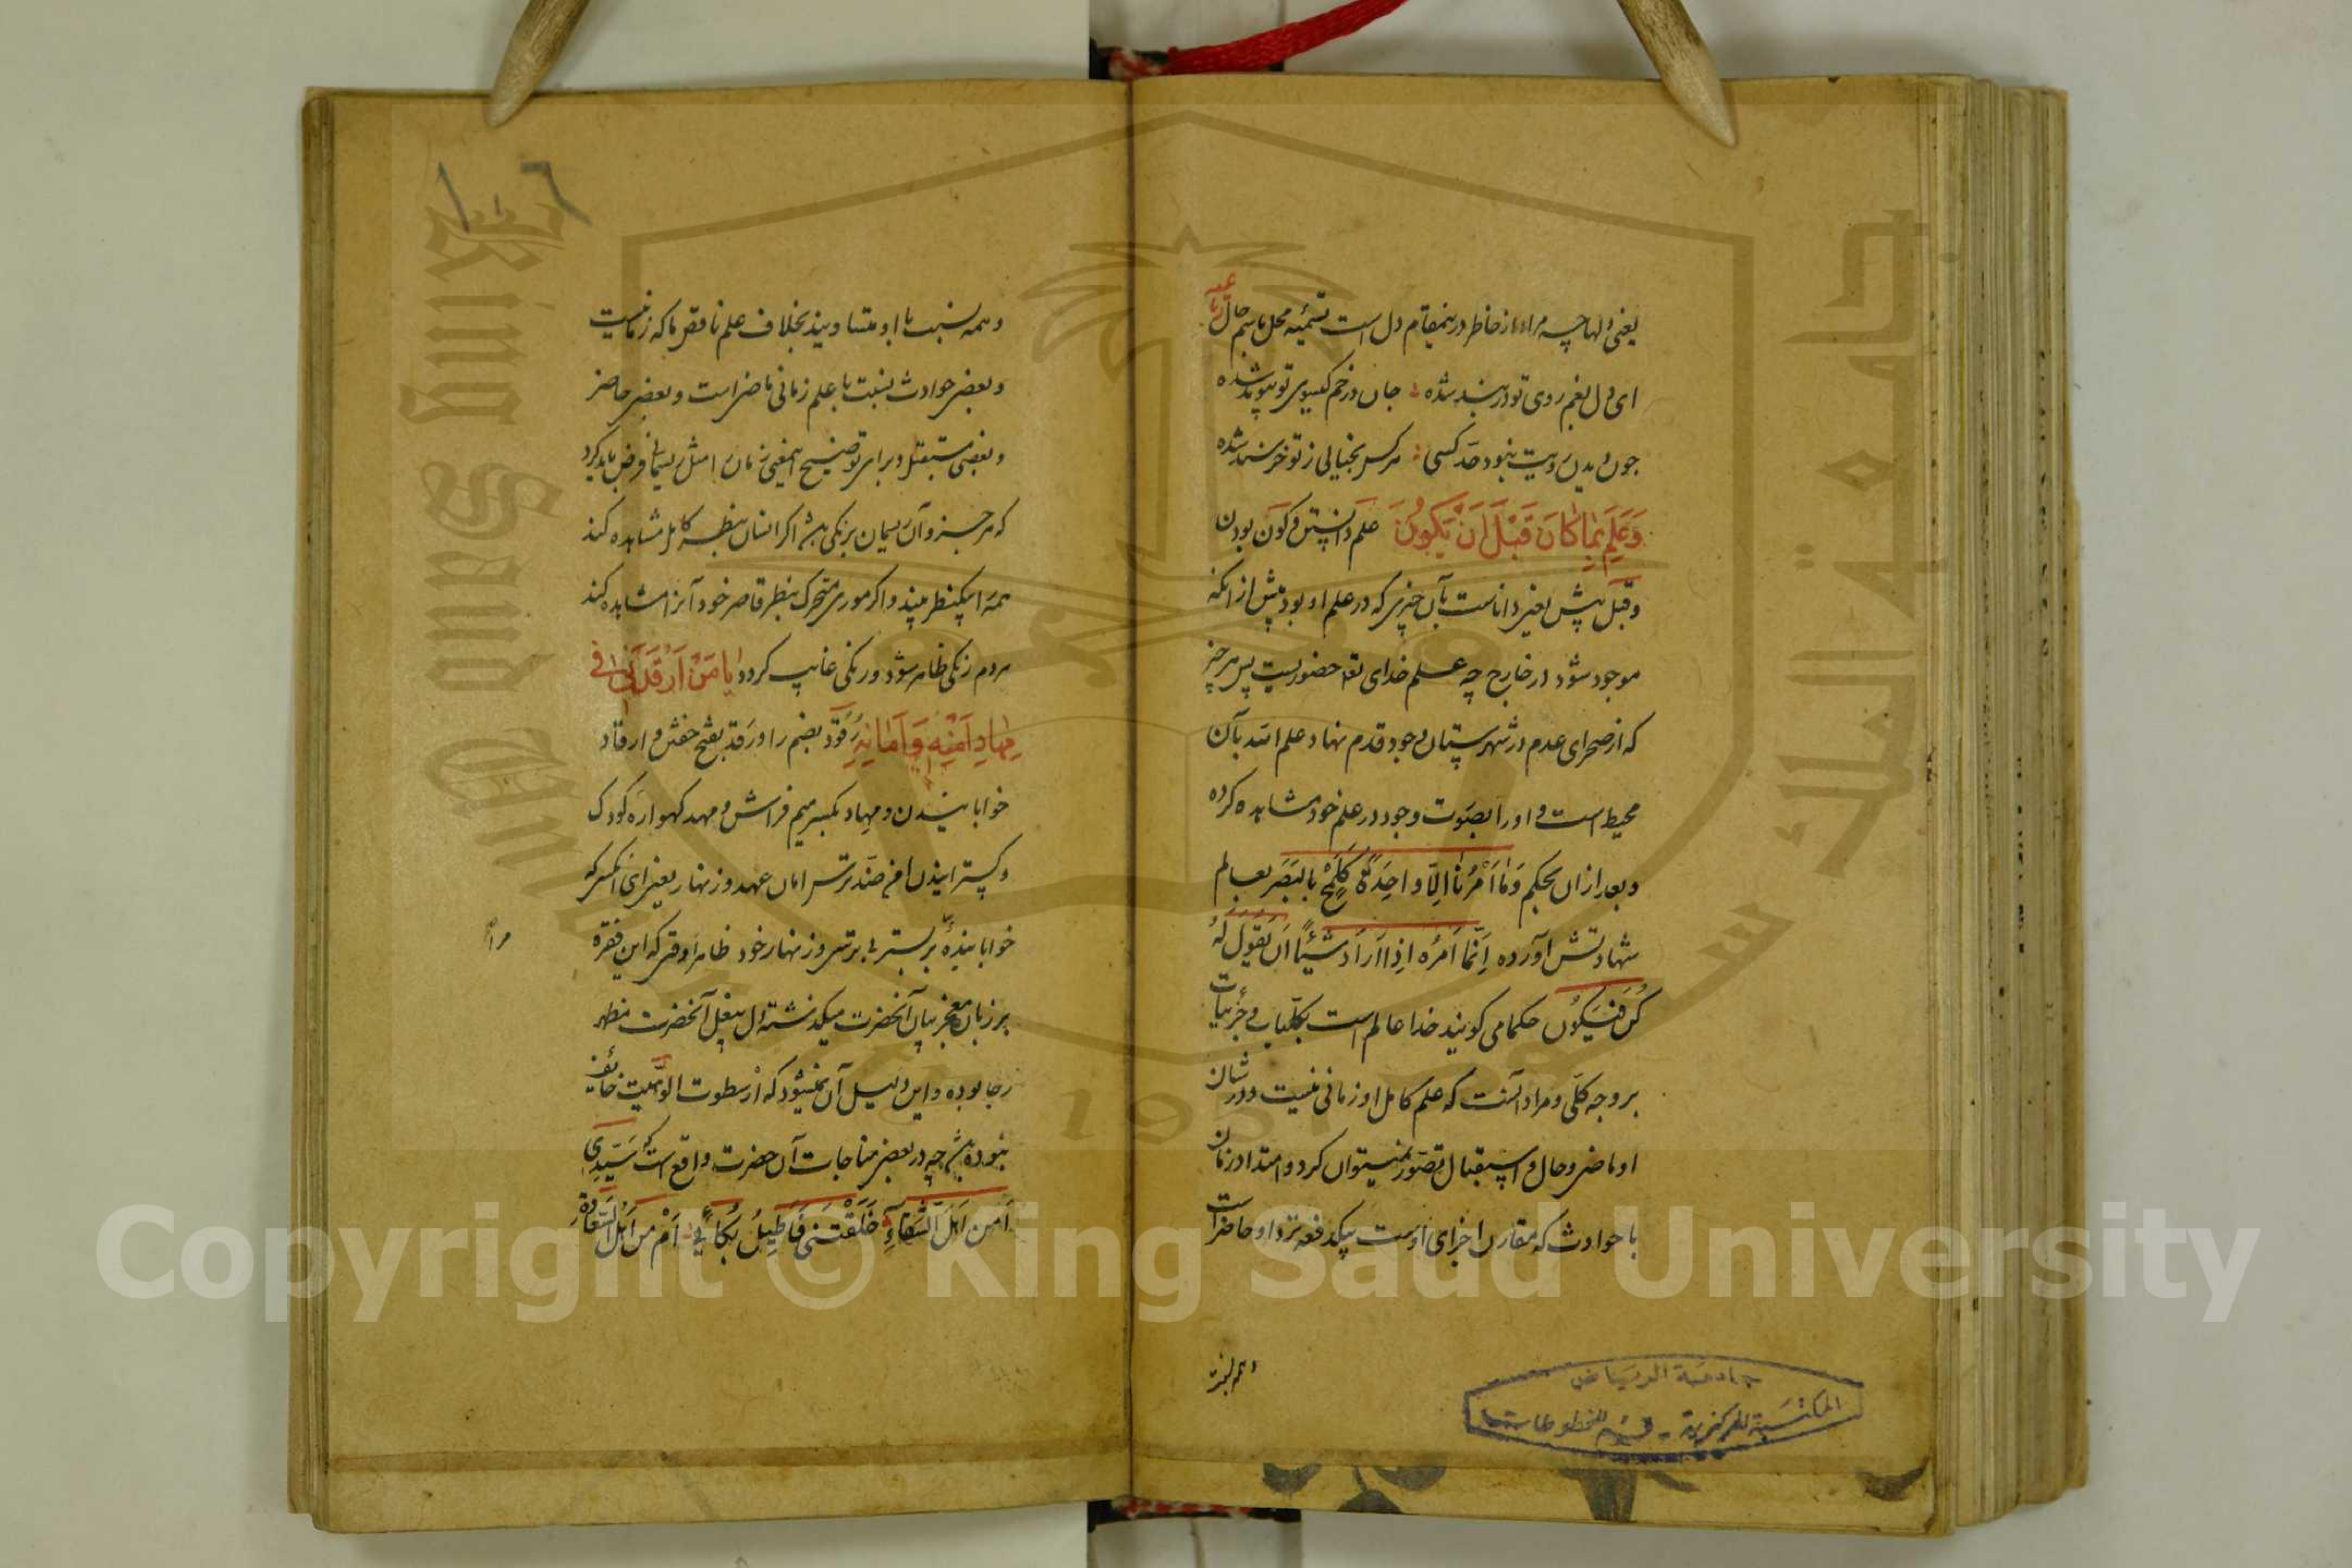 یعنی دلها چه مراد از خاطر درینمقام دل است تسمیه محل باسم حال رباعیه
ای دل بغم روی تو در بند شده جان در خم کیسوی تو پیوند شده
چون دیدن رویت نبود حد کسی هر کس بخیالی ز تو خرسند شده
وَعَلِمَ بِمَا كَانَ قَبْلَ اَنْ یَكُونَ علم دانستن و کون بودن
و قبل پیش یعنی داناست بآن چیزی که در علم او بود پیش از انکه
موجود شود در خارج چه علم خدای تعا حضوریست پس هر چیز
که از صحرای عدم در شهرستان وجود قدم نهاد علم الله بآن
محیط است و او را بصورت وجود در علم خود مشاهده کرده
و بعد ازان بحکم وَمَا اَمْرُنَا اِلَّا وَاحِدَةٌ كَلَمْحٍ بِالْبَصَرِ بعالم
شهادتش آورده اِنَّمَا اَمْرُهُ اِذَا اَرَادَ شَیْئًا اَنْ یَقُولَ لَهُ
كُنْ فَیَكُونُ حکما می کویند خدا عالم است بکلیات و جزئیات
بر وجه کلی و مراد آنست که علم کامل او زمانی نیست و در شان
او ماضی و حال و استقبال تصور نمیتوان کرد و امتداد زمان
با حوادث که مقارن اجزای اوست بیکدفعه نزد او حاضر است
و همه نسبت
جامعة الرياض
المكتبة المركزية - قسم المخطوطات
١٠٦
و همه نسبت با او متساویند بخلاف علم ناقص ما که زمانیست
و بعضی حوادث نسبت با علم زمانی ماضی است و بعضی حاضر
و بعضی مستقبل و برای توضیح اینمعنی زمان را مثل ریسمانی فرض باید کرد
که هر جزو آن ریسمان برنکی باشد اکر انسان بنظر کامل مشاهده کند
همه را بیکنظر بیند و اکر موری متحرک بنظر قاصر خود آنرا مشاهده کند
هر دم رنکی ظاهر شود و رنکی غایب کردد یَا مَنْ اَرْقَدَنِي فِي
مِهَادِ اَمْنِهِ وَاَمَانِهِ رُقود بضم را و رَقد بفتح خفتن و ارقاد
خوابانیدن و مهاد بکسر میم فراش و مهد کهواره کودک
و کسترانیدن امن ضد ترس امان عهد و زنهار یعنی ای آنکس که
خوابانیدهٔ مرا بر بستر بی ترس و زنهار خود ظاهرا وقتی که این فقره
بر زبان معجز بیان آنحضرت میکذشته دل بیغل آنحضرت مظهر
رجا بوده و این دلیل آن نمیشود که از سطوت الوهیت خایف
نبوده باشد چه در بعضی مناجات آن حضرت واقع است که سَیِّدِي
اَمِنْ اَهْلِ الشَّقَاءِ خَلَقْتَنِي فَاُطِیلُ بُكَائِي اَمْ مِنْ اَهْلِ السَّعَادَةِ
Copyright © King Saud University
King Saud University
جامعة الملك سعود
1957